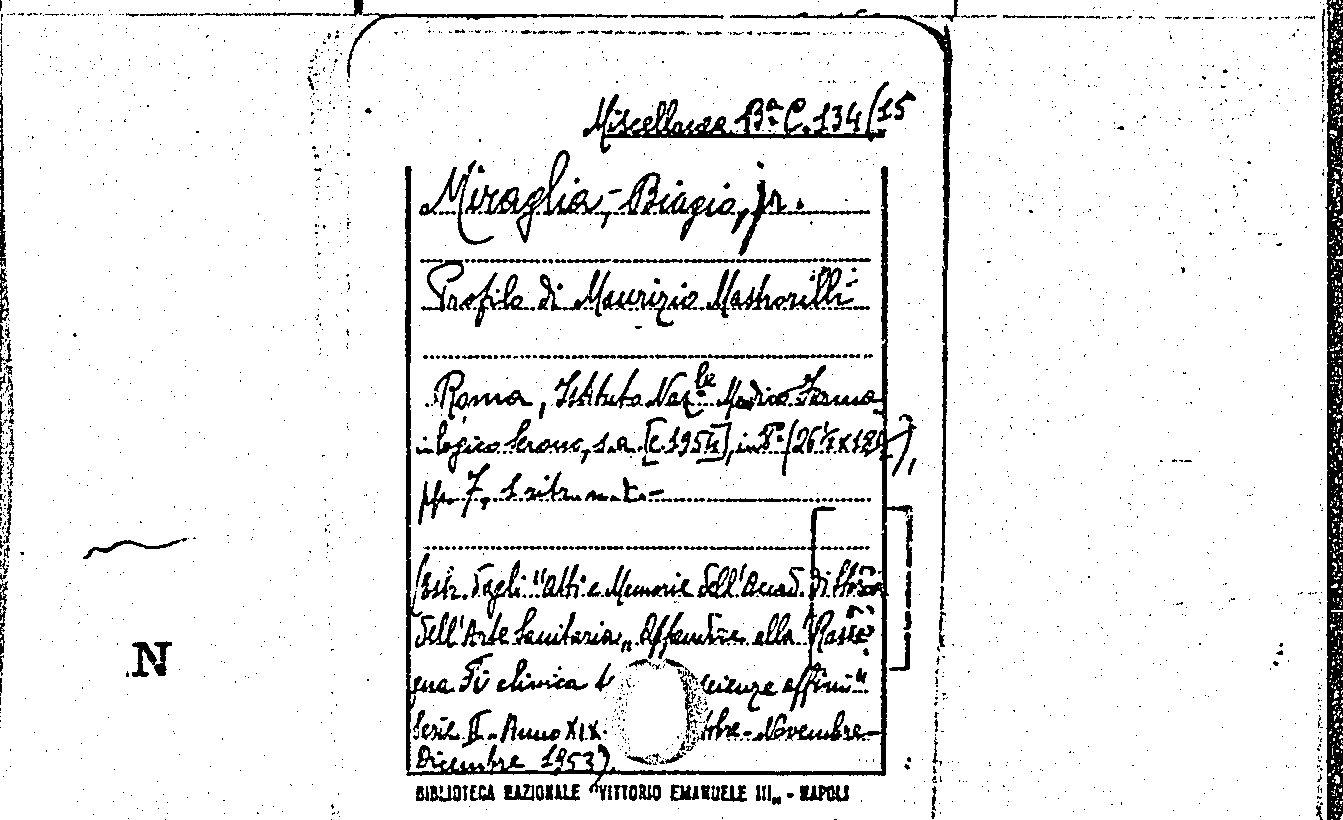 Miscellanea Bª C. 134/15
Miraglia, Biagio, jr.
Profilo di Maurizio Mastrorilli
Roma, Istituto Naz.le Medico Farma
cologico Serono, s.a. [c. 1954], in 8º (26½ x
pp. 7, 1 ritr. n.t. -
(Estr. dagli "Atti e Memorie dell'Accad. di Storia
dell'Arte Sanitaria„ Appendice alla "Rasse
gna di clinica t scienze affini"
Serie II. Anno XIX. mbre - Novembre -
Dicembre 1953).
N
BIBLIOTECA NAZIONALE "VITTORIO EMANUELE III„ - NAPOLI